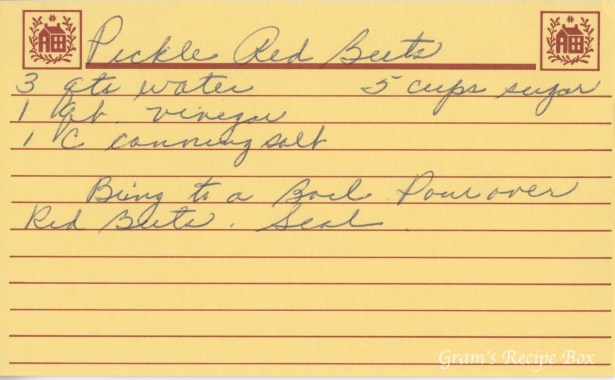 Pickle Red Beets
3 qts water 5 cups sugar
1 qt. vinegar
1 C canning salt
Bring to a Boil Pour over
Red Beets. Seal.
Gram's Recipe Box